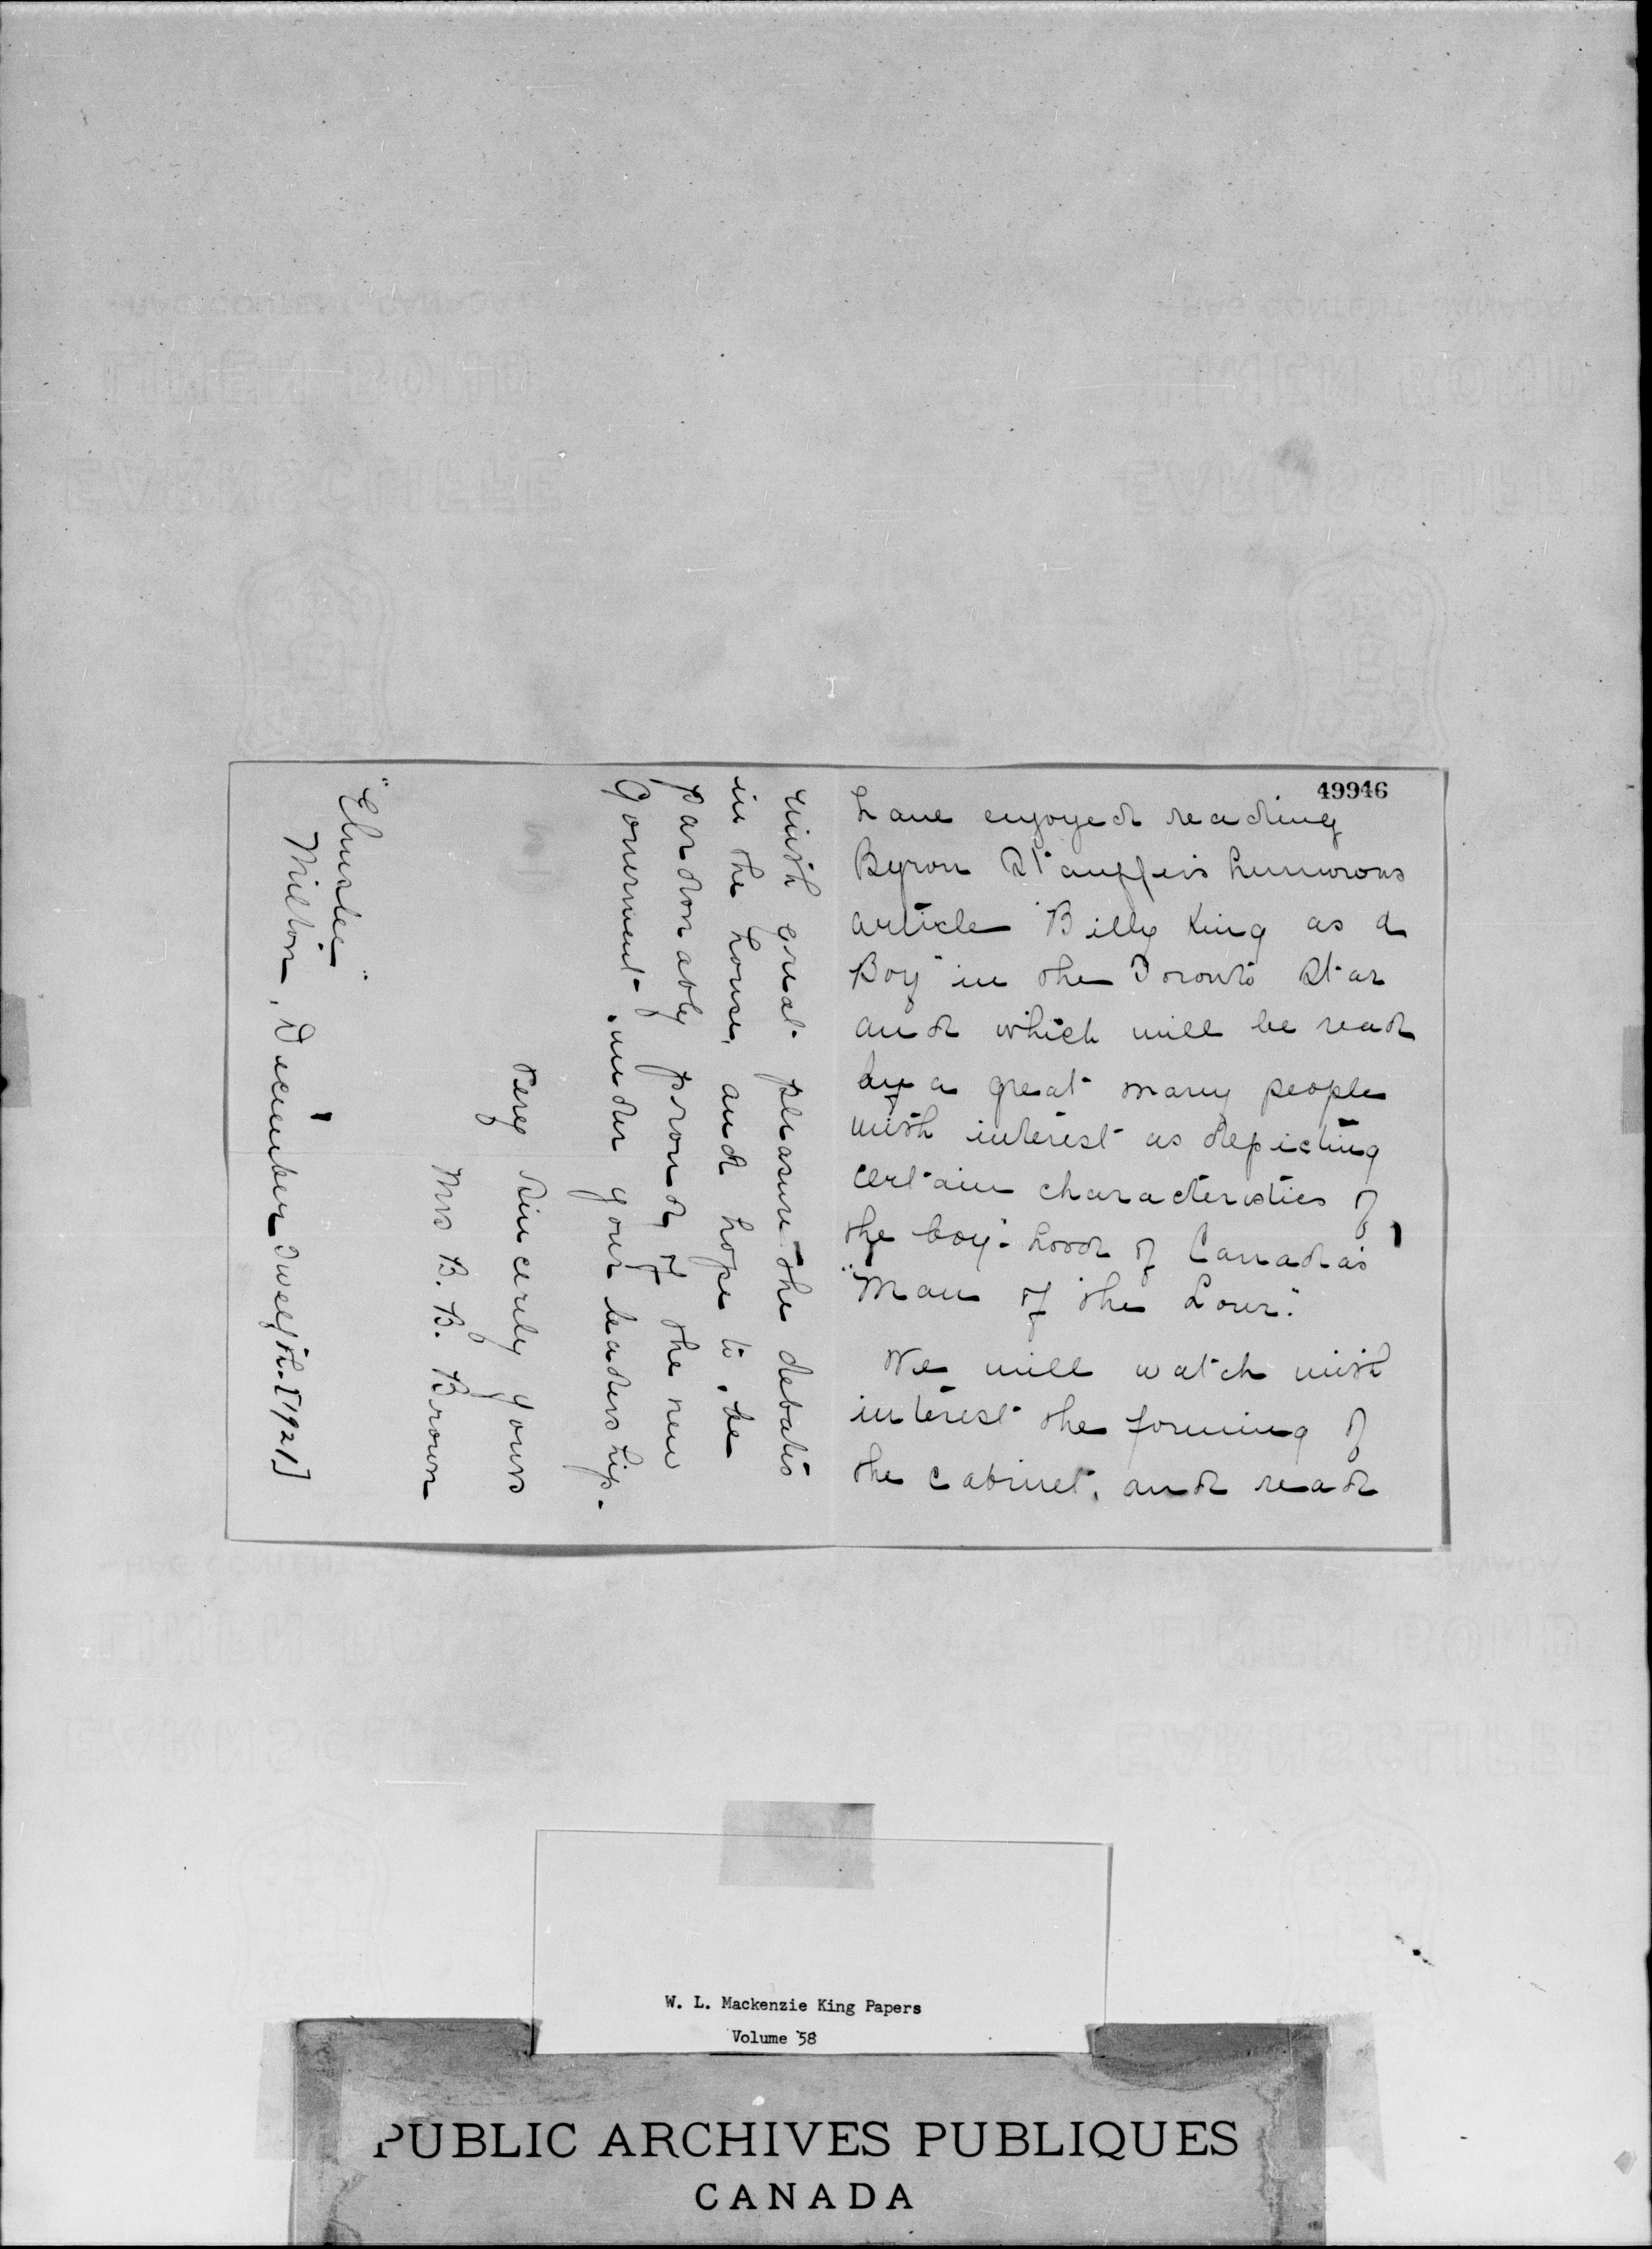 49946
have enjoyed reading
Byron Stauffer's humorous
article "Billy King as a
Boy" in the Toronto Star
and which will be read
by a great many people
with interest as depicting
certain characteristics of
the boy-hood of Canada's
"Man of the Hour."
We will watch with
interest the forming of
the cabinet, and read
with great pleasure the debates
in the house, and hope to be
pardonably proud of the new
Government, under your leadership.
Very Sincerely yours
Mrs B. B. Brown
Milton, December Twelfth [1921]
W. L. Mackenzie King Papers
Volume 58
PUBLIC ARCHIVES PUBLIQUES
CANADA